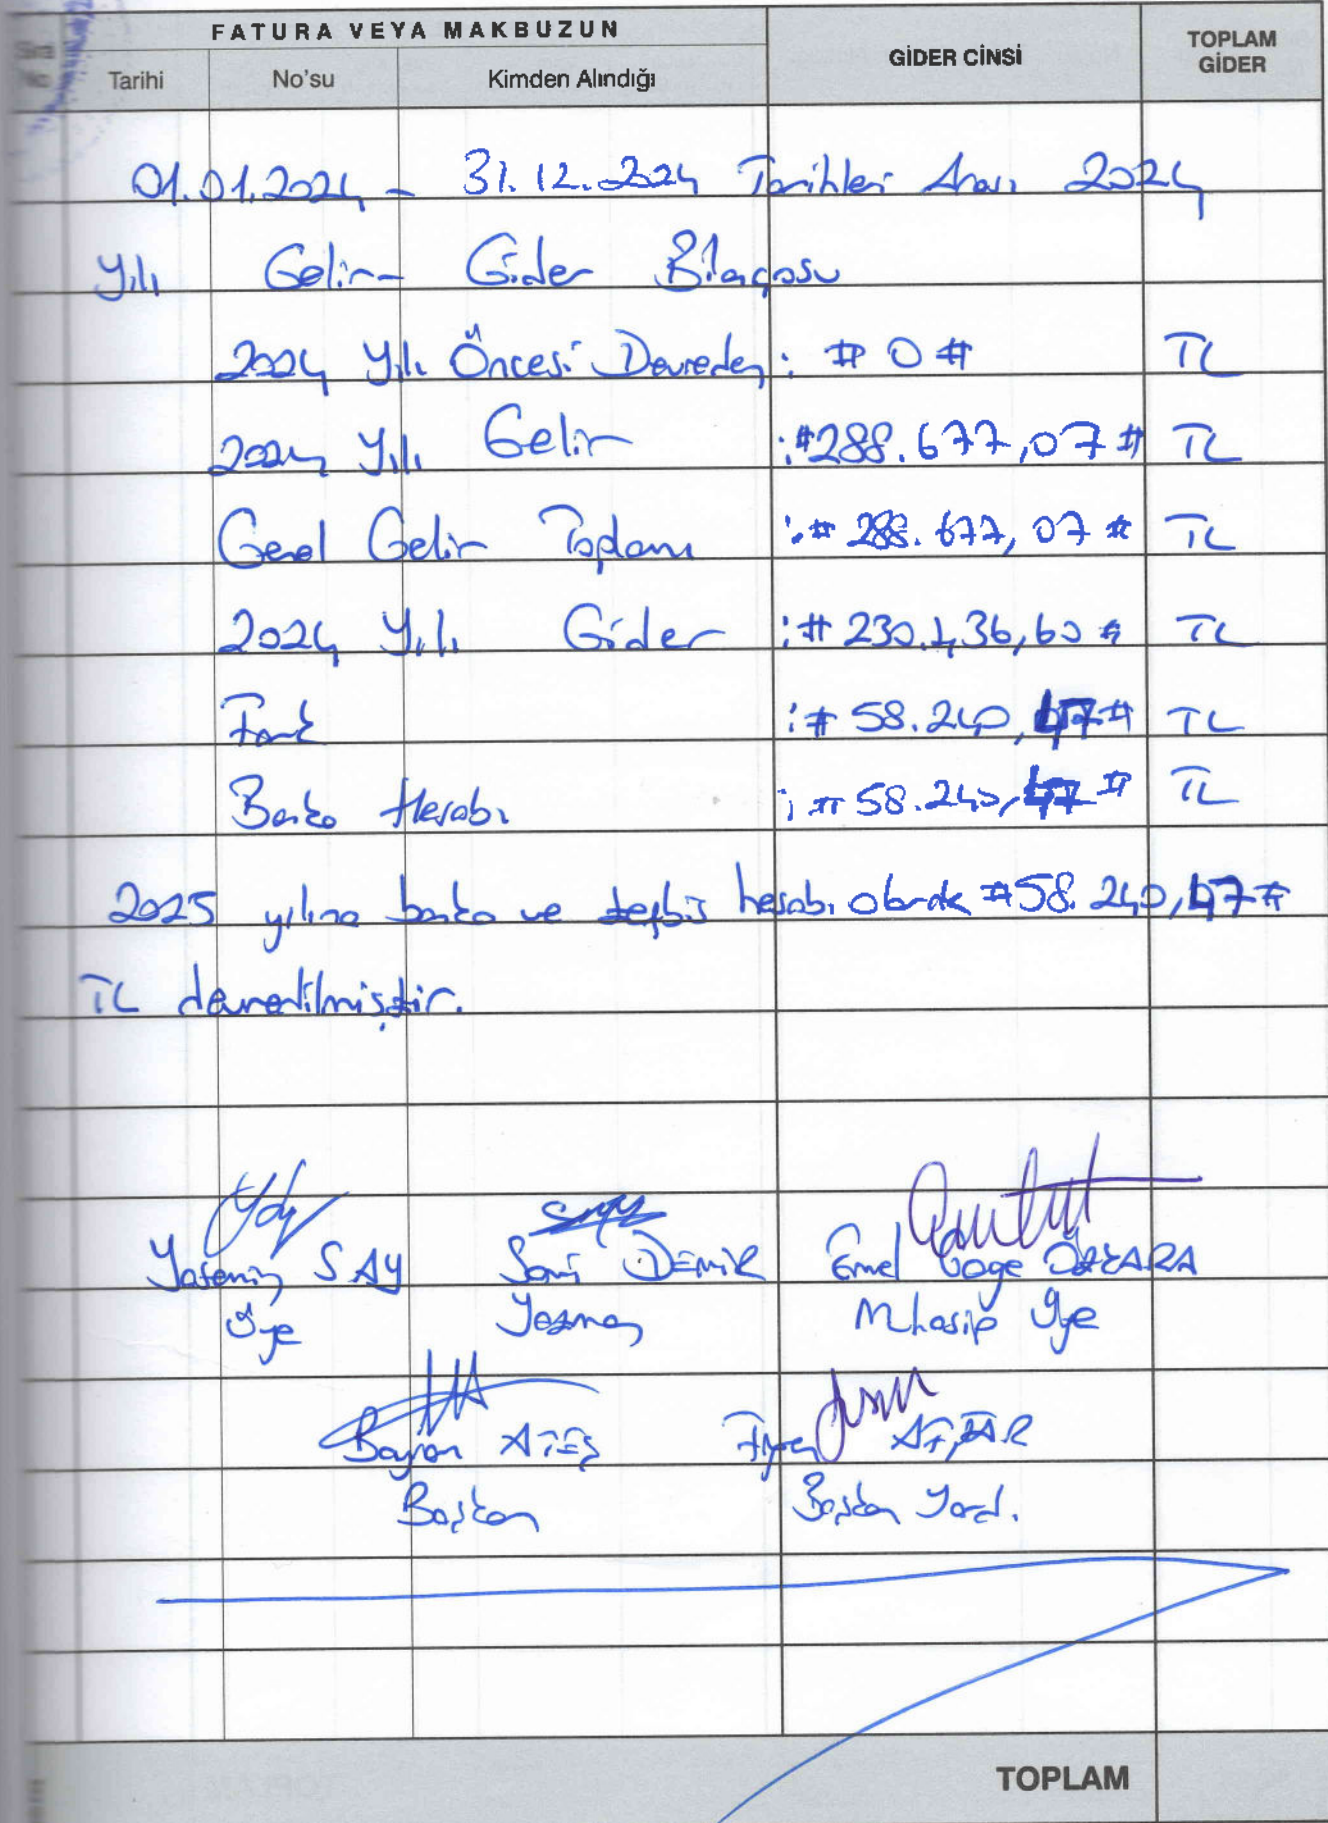 FATURA VEYA MAKBUZUN
GİDER CİNSİ
TOPLAM GİDER
Sıra No Tarihi No'su Kimden Alındığı
01.01.2024 - 31.12.2024 Tarihleri Arası 2024
Yılı Gelir - Gider Bilançosu
2024 Yılı Öncesi Devreden : # 0 # TL
2024 Yılı Gelir : #288.677,07 # TL
Genel Gelir Toplamı : # 288.677,07 # TL
2024 Yılı Gider : # 230.436,60 # TL
Fark : # 58.240,47 # TL
Banka Hesabı : # 58.240,47 # TL
2025 yılına banka ve hesabı olarak #58.240,47 #
TL devredilmiştir.
Yasemin SAY Sami DEMİR Emel ÖZKARA
Üye Yazman Muhasip Üye
Bayram ATEŞ
Başkan Başkan Yard.
TOPLAM